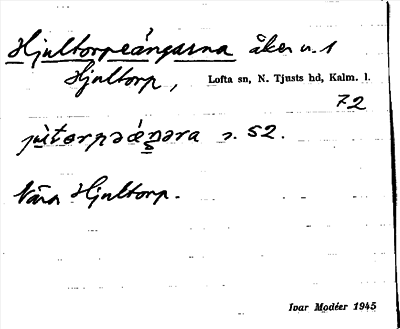 Hjultorpeängarna åker u. 1
Hjultorp, Lofta sn, N. Tjusts hd, Kalm. l.
72
s. 52.
Nära Hjultorp.
Ivar Modéer 1945